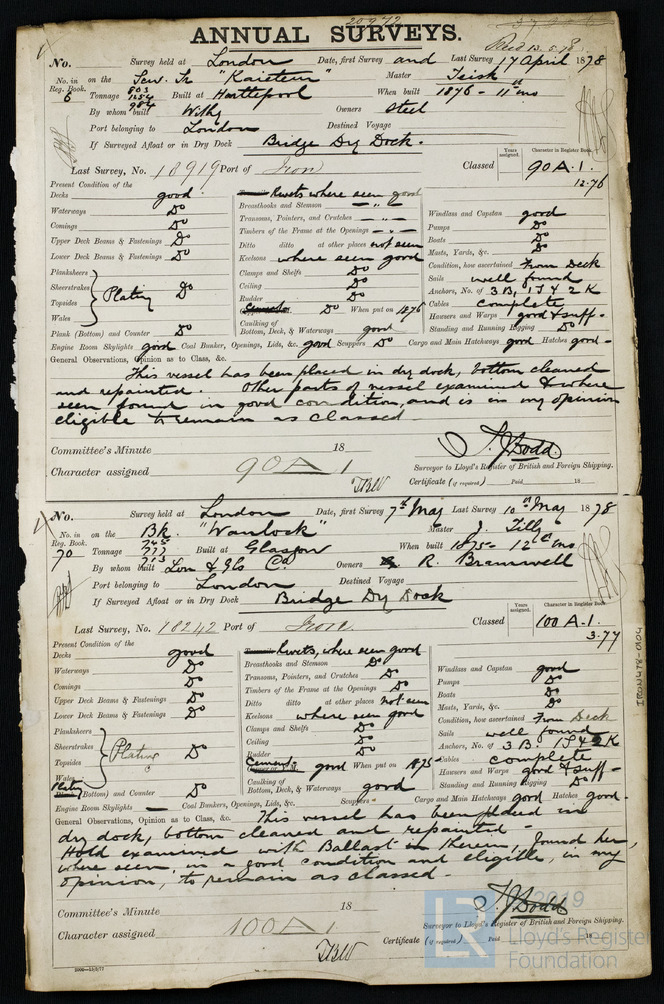 20972
ANNUAL SURVEYS.
Recd 13.5.78
No. Survey held at London Date, first Survey and Last Survey 17 April 1878
No. in Reg. Book. 6 on the Scw. Sr "Kaieteur" Master
803
Tonnage 1254 Built at Hartlepool When built 1876 - 11th mo
984
By whom built Withy Owners Steel
Port belonging to London Destined Voyage
If Surveyed Afloat or in Dry Dock Bridge Dry Dock.
Years assigned. Character in Register Book.
Last Survey, No. 18919 Port of Iron Classed 90 A.1.
12.76
Present Condition of the
Decks good Rivets where seen good
Waterways Do Breasthooks and Stemson - " - Windlass and Capstan good
Comings Do Transoms, Pointers, and Crutches - " - Pumps Do
Upper Deck Beams & Fastenings Do Timbers of the Frame at the Openings - " - Boats Do
Lower Deck Beams & Fastenings Do Ditto ditto at other places not seen Masts, Yards, &c. Do
Planksheers Keelsons where seen good Condition, how ascertained From Deck
Sheerstrakes Plating Do Clamps and Shelfs Do Sails well found
Topsides Ceiling Do Anchors, No. of 3 B, 1 S & 2 K
Wales Rudder Do Cables complete
Cement Do When put on 1876 Hawsers and Warps good & suff-
Plank (Bottom) and Counter Do Caulking of Bottom, Deck, & Waterways good Standing and Running Rigging Do
Engine Room Skylights good Coal Bunker, Openings, Lids, &c. good Scuppers Do Cargo and Main Hatchways good Hatches good-
General Observations, Opinion as to Class, &c.
This vessel has been placed in dry dock, bottom cleaned
and repainted. Other parts of vessel examined & where
seen found in good condition, and is in my opinion
eligible to remain as classed
Committee's Minute 18
Character assigned 90 A 1
T. J. Dodd.
Surveyor to Lloyd's Register of British and Foreign Shipping.
Certificate (if required) Paid 18
TBW
No. Survey held at London Date, first Survey 7th May Last Survey 10th May 1878
No. in Reg. Book. 70 on the Bk. "Wanlock" Master J. Tilly
745
Tonnage 777 Built at Glasgow When built 1875 - 12th mo
713
By whom built Lon & Glo Co Owners R. Bramwell
Port belonging to London Destined Voyage
If Surveyed Afloat or in Dry Dock Bridge Dry Dock
Years assigned. Character in Register Book
Last Survey, No. 18242 Port of Iron Classed 100 A.1.
3.77
Present Condition of the
Decks good Rivets, where seen good
Waterways Do Breasthooks and Stemson Do Windlass and Capstan good
Comings Do Transoms, Pointers, and Crutches Do Pumps Do
Upper Deck Beams & Fastenings Do Timbers of the Frame at the Openings Do Boats Do
Lower Deck Beams & Fastenings Do Ditto ditto at other places not seen Masts, Yards, &c. Do
Planksheers Keelsons where seen good Condition, how ascertained From Deck
Sheerstrakes Plating Do Clamps and Shelfs Do Sails well found
Topsides Ceiling Do Anchors, No. of 3 B. 1 S & 2 K
Wales Rudder Do Cables complete
Plating Cement good When put on 1875 Hawsers and Warps good & suff-
(Bottom) and Counter Do Caulking of Bottom, Deck, & Waterways good Standing and Running Rigging Do
Engine Room Skylights — Coal Bunkers, Openings, Lids, &c. Scuppers Cargo and Main Hatchways good Hatches good.
General Observations, Opinion as to Class, &c. This vessel has been placed in
dry dock, bottom cleaned and repainted -
Hold examined with Ballast in therein, found her,
where seen, in a good condition and eligible, in my
opinion, to remain as classed -
Committee's Minute 18
Character assigned 100 A 1
T. J. Dodd
Surveyor to Lloyd's Register of British and Foreign Shipping.
Certificate (if required) Paid 18
TBW
IRON478-0104
2019
LR
Lloyd's Register
Foundation